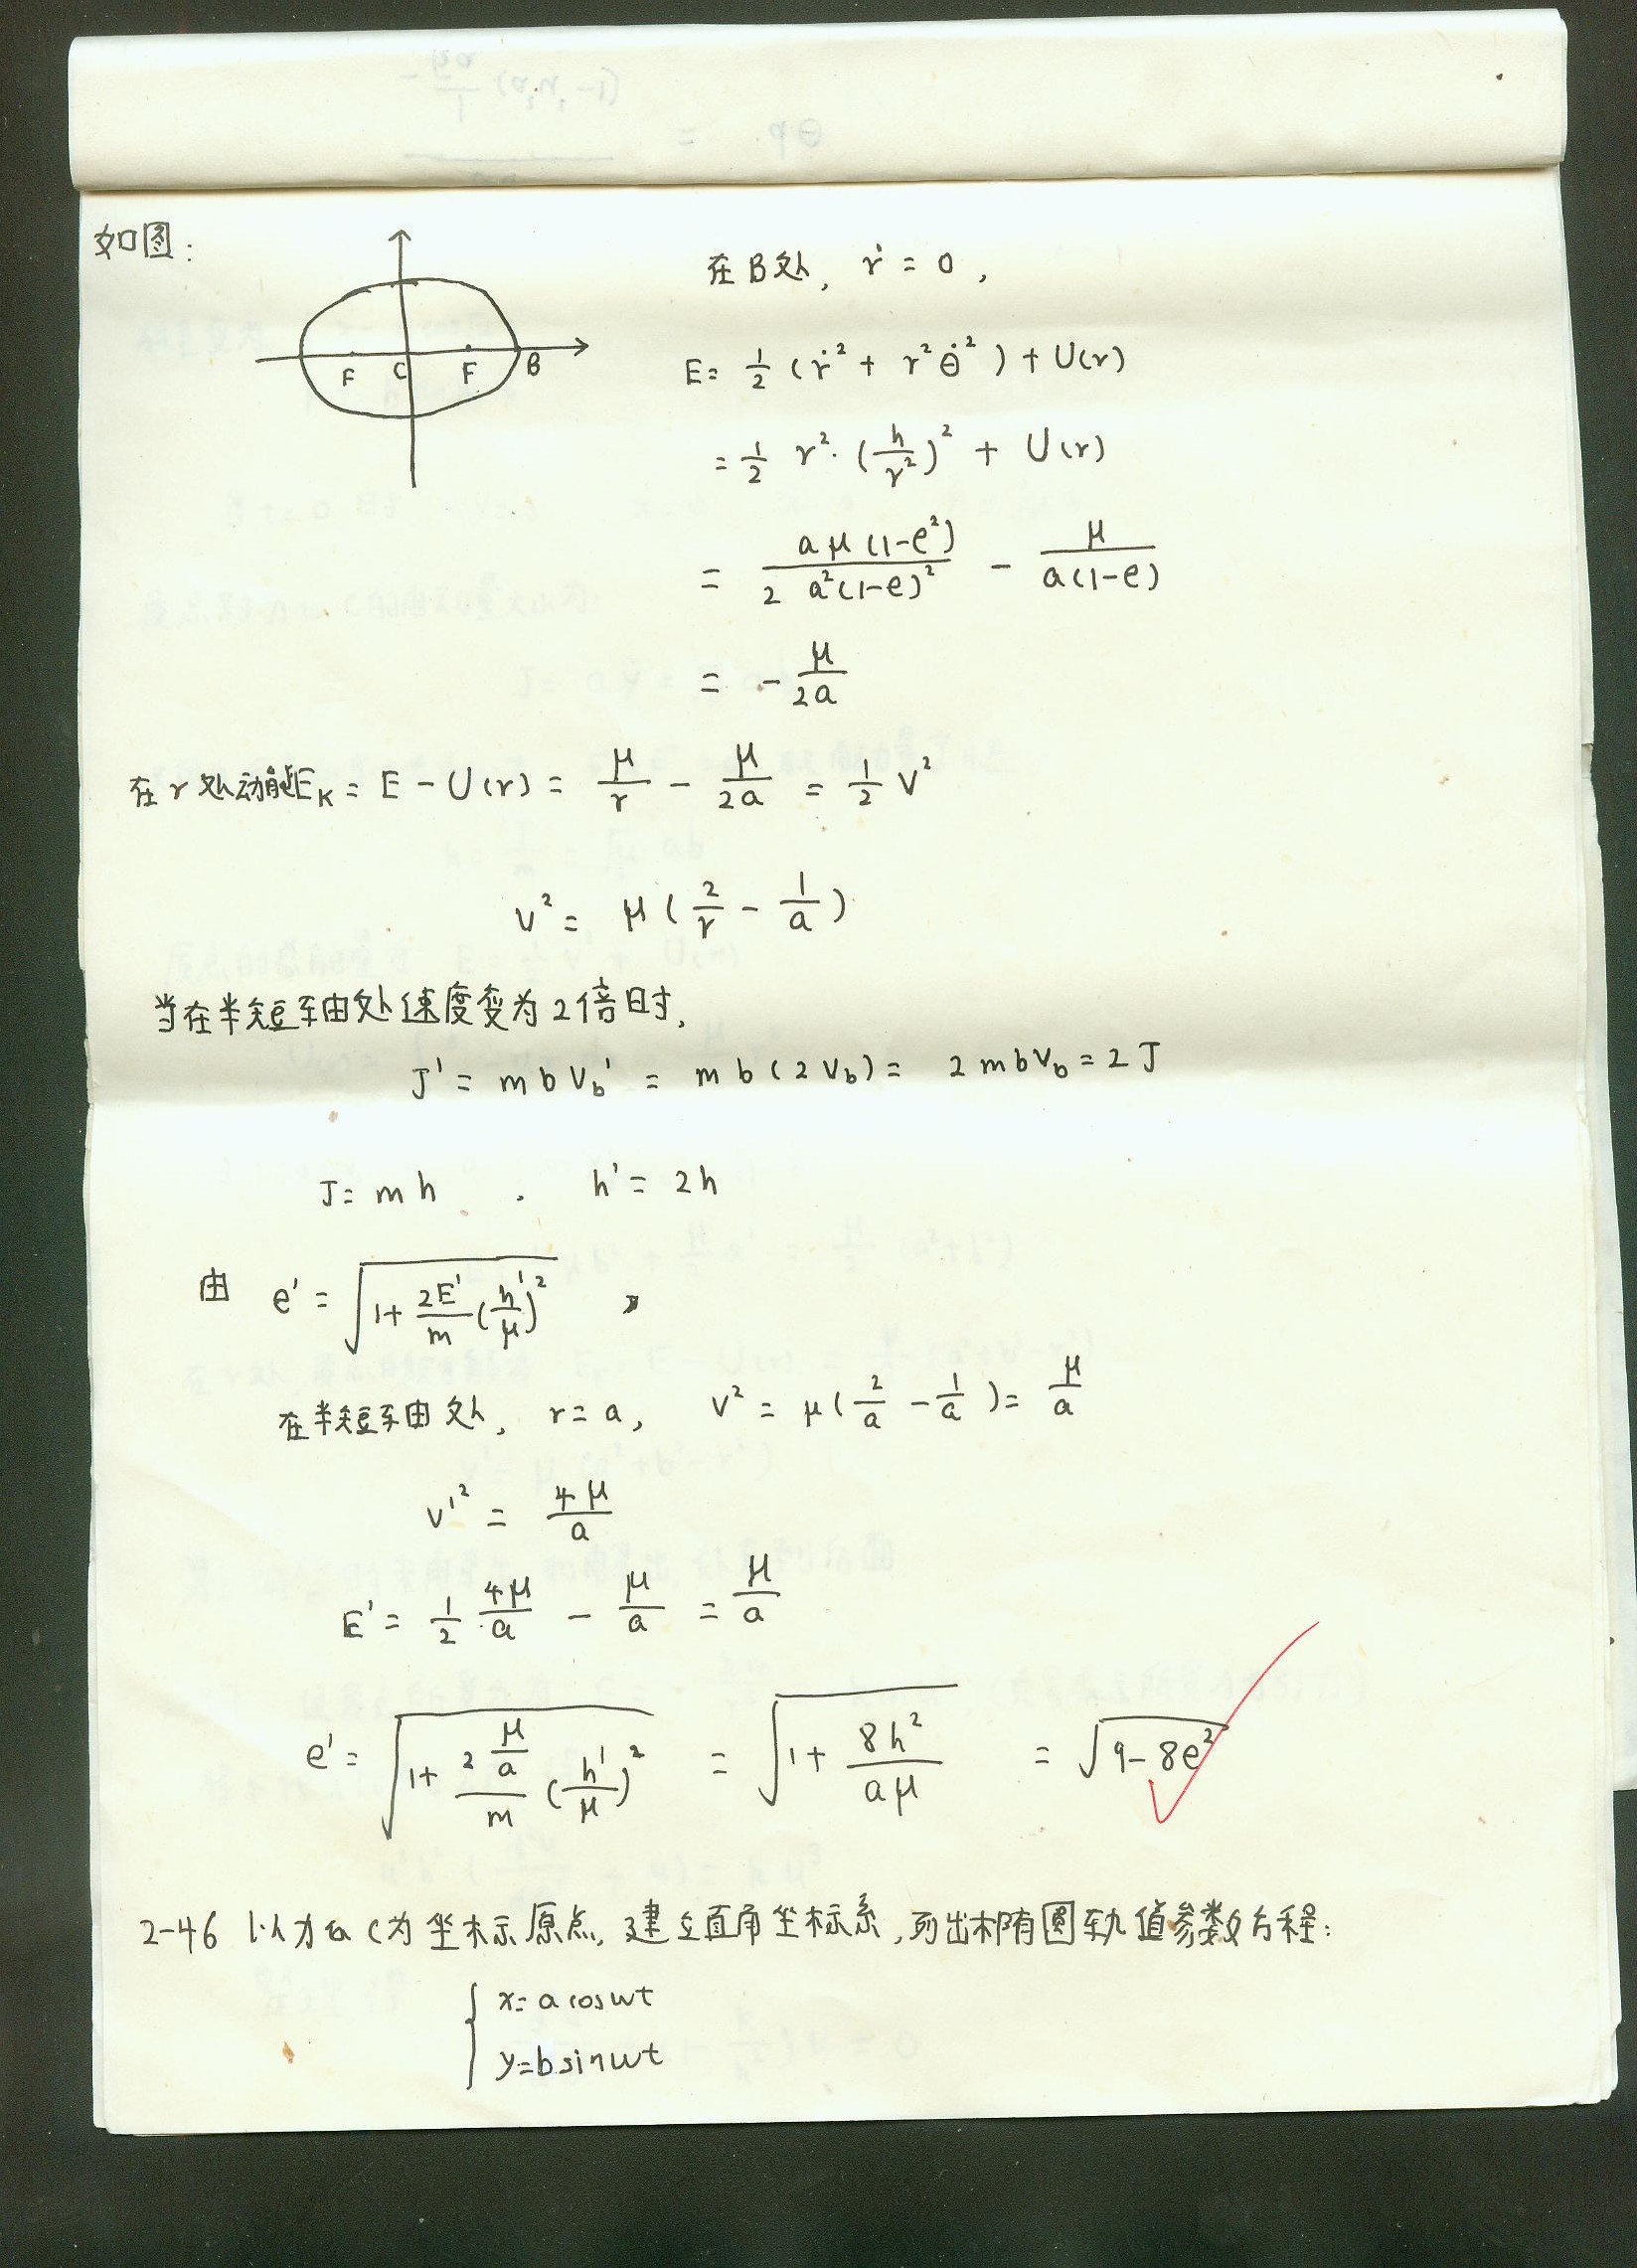 如图:
F C F B
在B处, ṙ = 0,
E = 1/2 (ṙ² + r²θ̇²) + U(r)
= 1/2 r²·(h/r²)² + U(r)
= aμ(1-e²)/(2a²(1-e)²) - μ/(a(1-e))
= -μ/(2a)
在r处动能E_K = E - U(r) = μ/r - μ/(2a) = 1/2 V²
V² = μ(2/r - 1/a)
当在半短轴处速度变为2倍时,
J' = m b V_b' = m b (2V_b) = 2 m b V_b = 2J
J = mh . h' = 2h
由 e' = √(1 + (2E'/m)(h'/μ)²)
在半短轴处, r = a, V² = μ(2/a - 1/a) = μ/a
V'² = 4μ/a
E' = 1/2 · 4μ/a - μ/a = μ/a
e' = √(1 + (2(μ/a)/m)(h'/μ)²) = √(1 + 8h²/(aμ)) = √(9-8e²)
2-46 以力心C为坐标原点, 建立直角坐标系, 列出椭圆轨道参数方程:
{ x = a cosωt
y = b sinωt